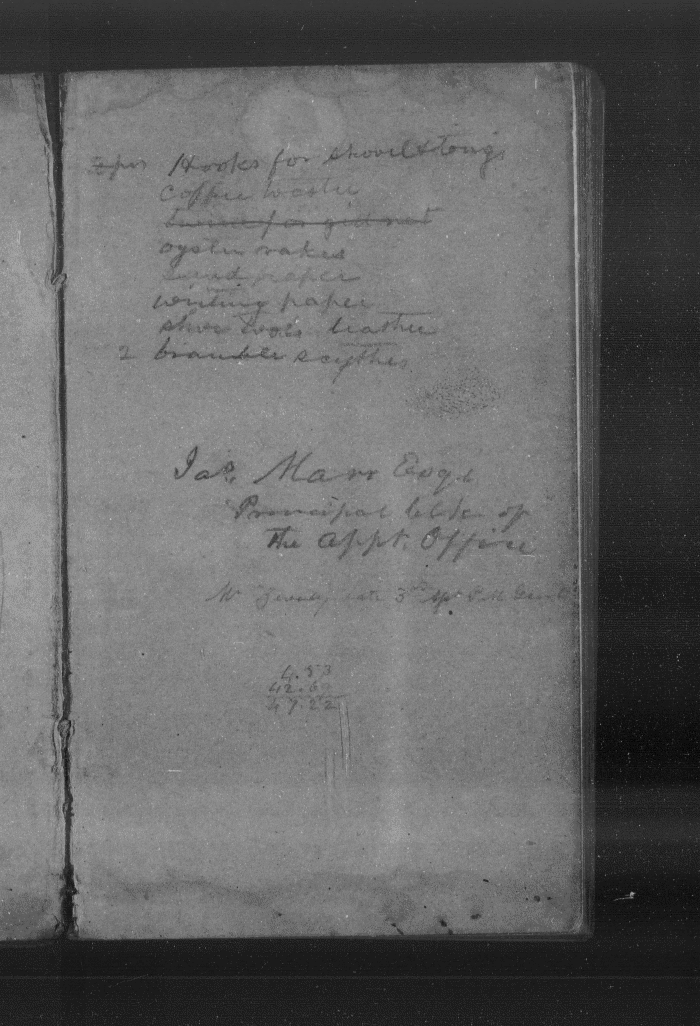 Hooks for shovel & tongs
coffee toaster
twine for gid net
oyster rakes
sand paper
writing paper
shoe tools leather
2 bramble scythes
Jas. Marr Esqr
Principal Clk of
the Appt. Office
Mr late 3rd P. M. Genl
4.53
42.69
47.22